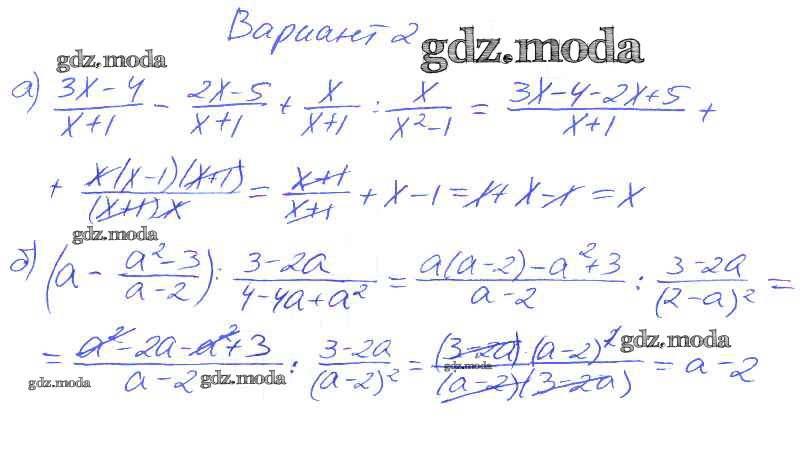 Вариант 2 gdz.moda
gdz.moda
а) (3x-4)/(x+1) - (2x-5)/(x+1) + x/(x+1) : x/(x²-1) = (3x-4-2x+5)/(x+1) +
+ (x(x-1)(x+1))/((x+1)x) = (x+1)/(x+1) + x-1 = 1+x-1 = x
gdz.moda
б) (a - (a²-3)/(a-2)) : (3-2a)/(4-4a+a²) = (a(a-2)-a²+3)/(a-2) : (3-2a)/(2-a)² =
= (a²-2a-a²+3)/(a-2) : (3-2a)/(a-2)² = ((3-2a)·(a-2)²)/((a-2)(3-2a)) = a-2
gdz.moda
gdz.moda
gdz.moda gdz.moda